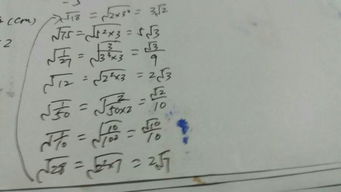 (cm)
√18 = √2×3² = 3√2
2
√75 = √5²×3 = 5√3
√1/27 = √3/3³×3 = √3/9
√12 = √2²×3 = 2√3
√1/50 = √2/50×2 = √2/10
√1/10 = √10/10² = √10/10
√28 = √2²×7 = 2√7